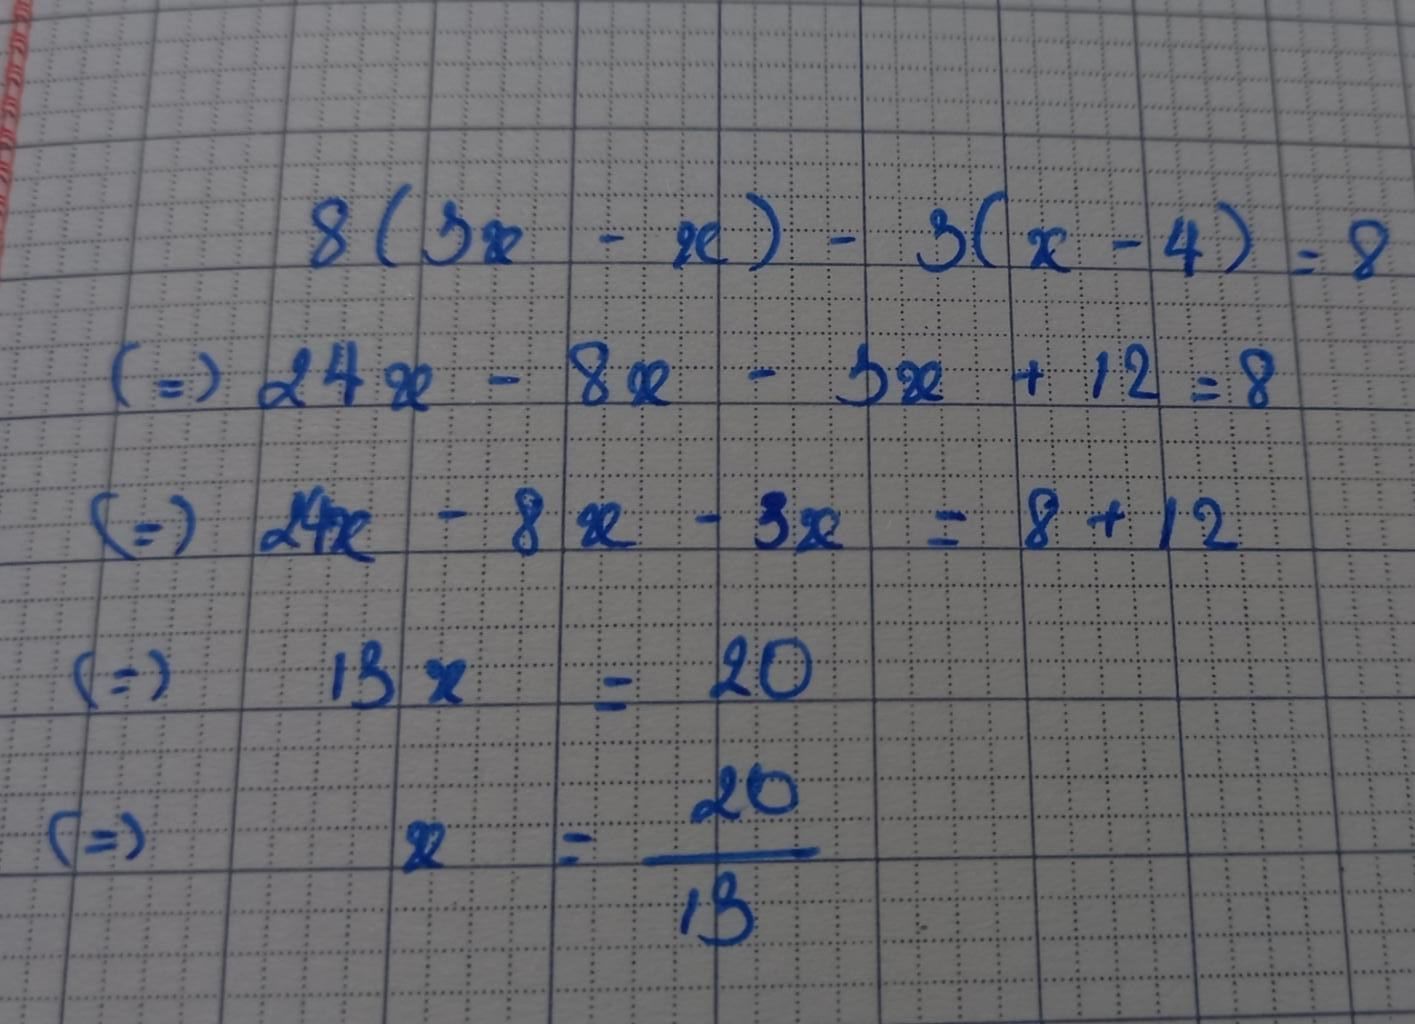 8(3x - x) - 3(x - 4) = 8
(=) 24x - 8x - 3x + 12 = 8
(=) 24x - 8x - 3x = 8 + 12
(=) 13x = 20
(=) x = 20/13